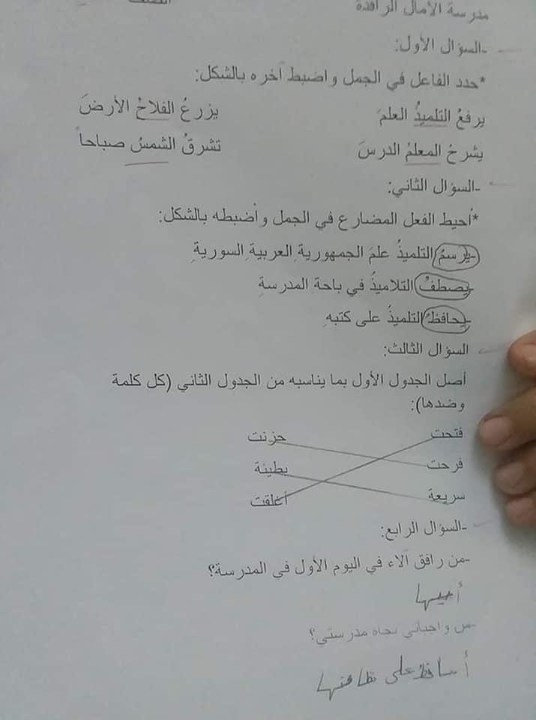 مدرسة الآمال الرافدة الصف
-السؤال الأول:
*حدد الفاعل في الجمل واضبط آخره بالشكل:
يرفعُ التلميذُ العلمَ يزرعُ الفلاحُ الأرضَ
يشرحُ المعلمُ الدرسَ تشرقُ الشمسُ صباحاً
-السؤال الثاني:
*أحيط الفعل المضارع في الجمل وأضبطه بالشكل:
-يرسمُ التلميذُ علمَ الجمهوريةِ العربيةِ السوريةِ
يصطفُ التلاميذُ في باحة المدرسةِ
-يحافظُ التلميذُ على كتبهِ
السؤال الثالث:
أصل الجدول الأول بما يناسبه من الجدول الثاني (كل كلمة
وضدها):
فتحت حزنت
فرحت بطيئة
سريعة أغلقت
-السؤال الرابع:
-من رافق آلاء في اليوم الأول في المدرسة؟
-من واجباتي تجاه مدرستي؟
أحافظ على نظافتها